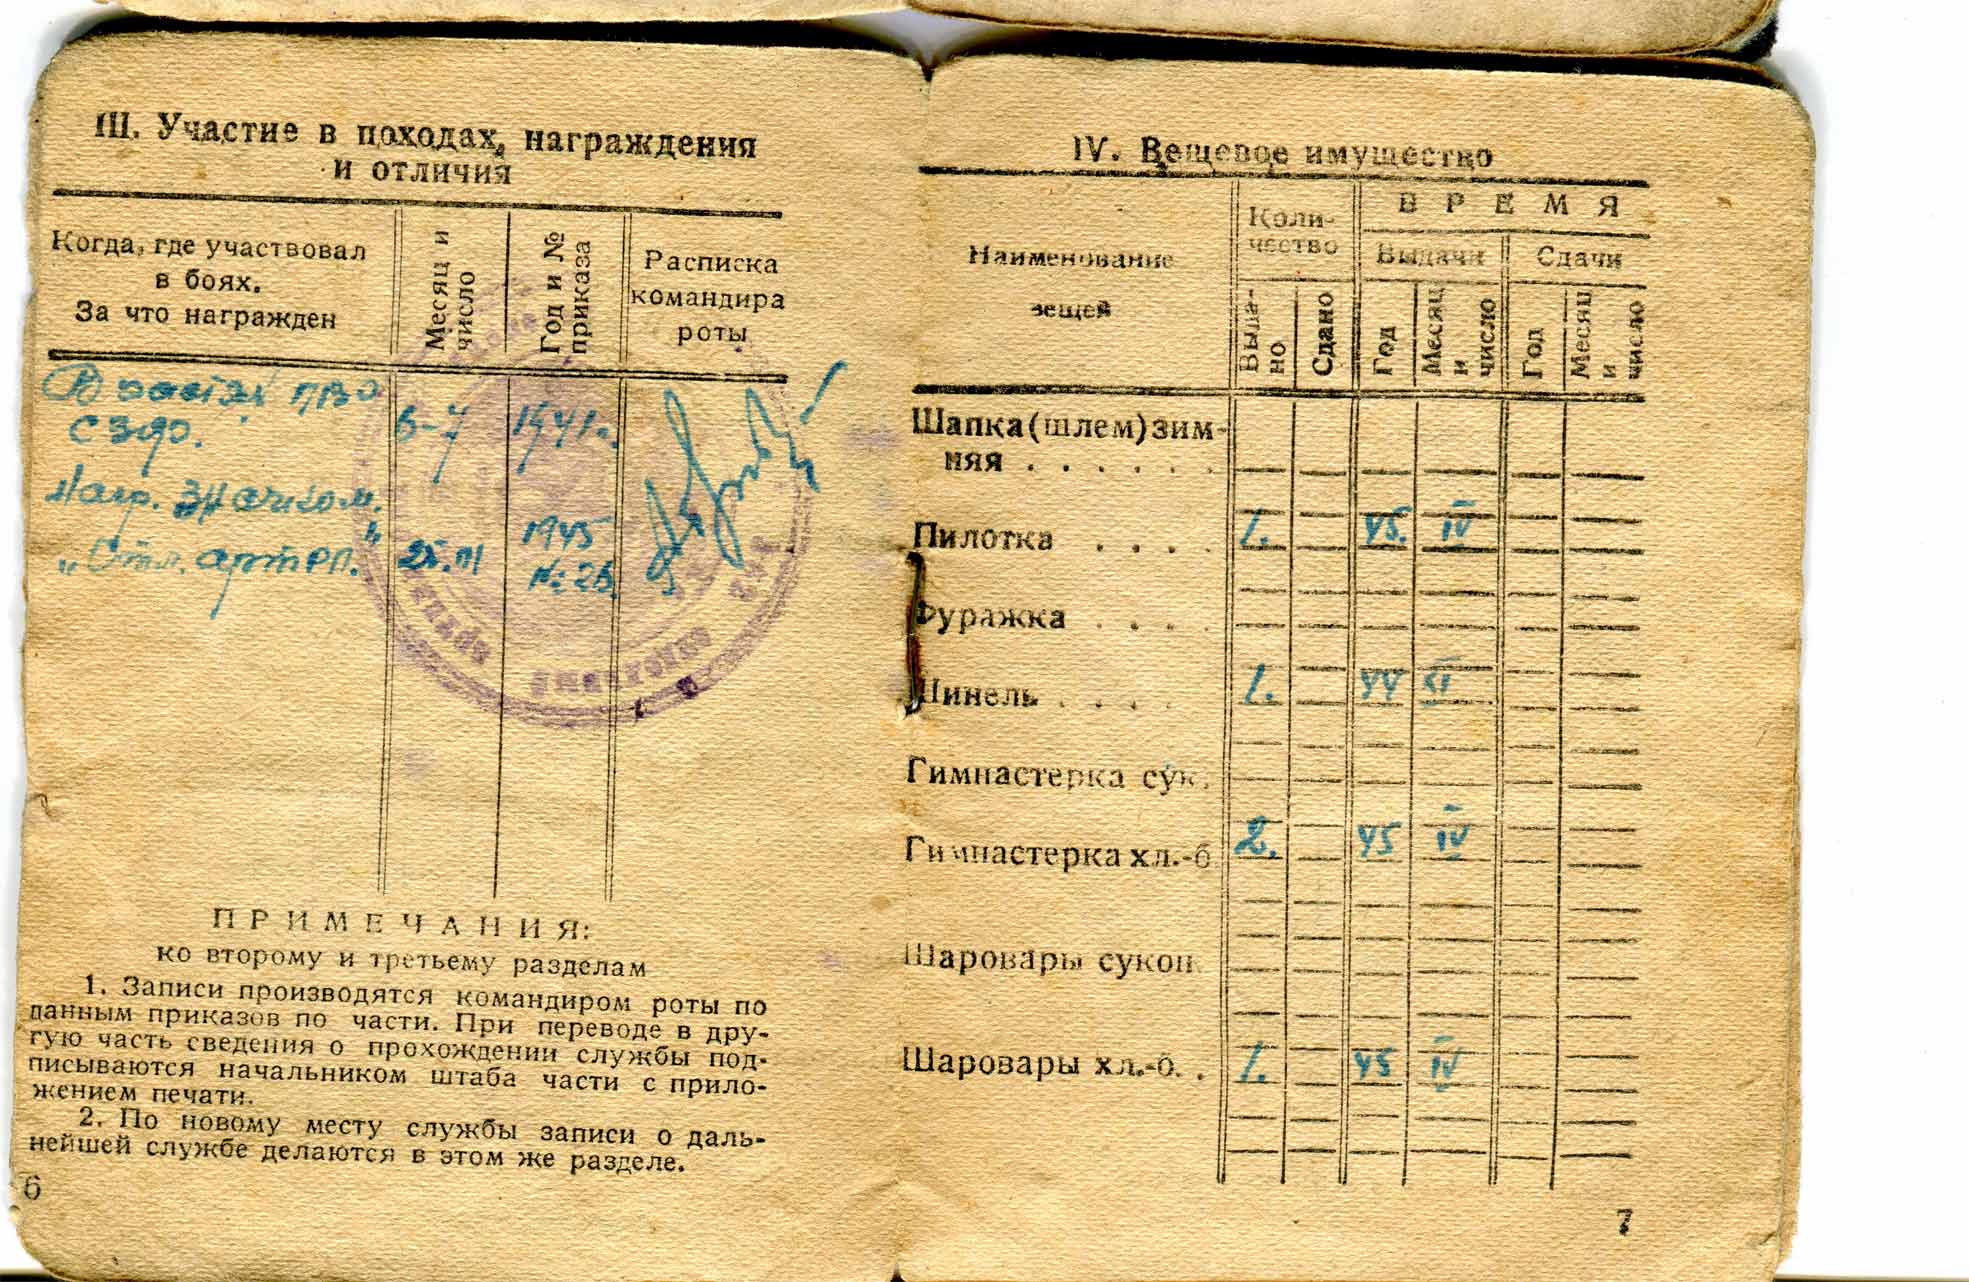 III. Участие в походах, награждения
и отличия
Когда, где участвовал
в боях.
За что награжден
Месяц и
число
Год и №
приказа
Расписка
командира
роты
В частях ПВО
СЗФр. 6-7 1941г.
Нагр. значком
„Отл. артил." 25.III 1945
№ 26.
ПРИМЕЧАНИЯ:
ко второму и третьему разделам
1. Записи производятся командиром роты по
данным приказов по части. При переводе в дру-
гую часть сведения о прохождении службы под-
писываются начальником штаба части с прило-
жением печати.
2. По новому месту службы записи о даль-
нейшей службе делаются в этом же разделе.
6
IV. Вещевое имущество
Наименование
вещей
Коли-
чество
ВРЕМЯ
Выдачи Сдачи
Выда-
но
Сдано
Год
Месяц
и
число
Год
Месяц
и
число
Шапка(шлем)зим-
няя . . . . . .
Пилотка . . . . 1. 45. IV
Фуражка . . . .
Шинель . . . . 1. 44 XI
Гимнастерка сук.
Гимнастерка хл.-б. 2. 45 IV
Шаровары сукон.
Шаровары хл.-б. . 1. 45 IV
7